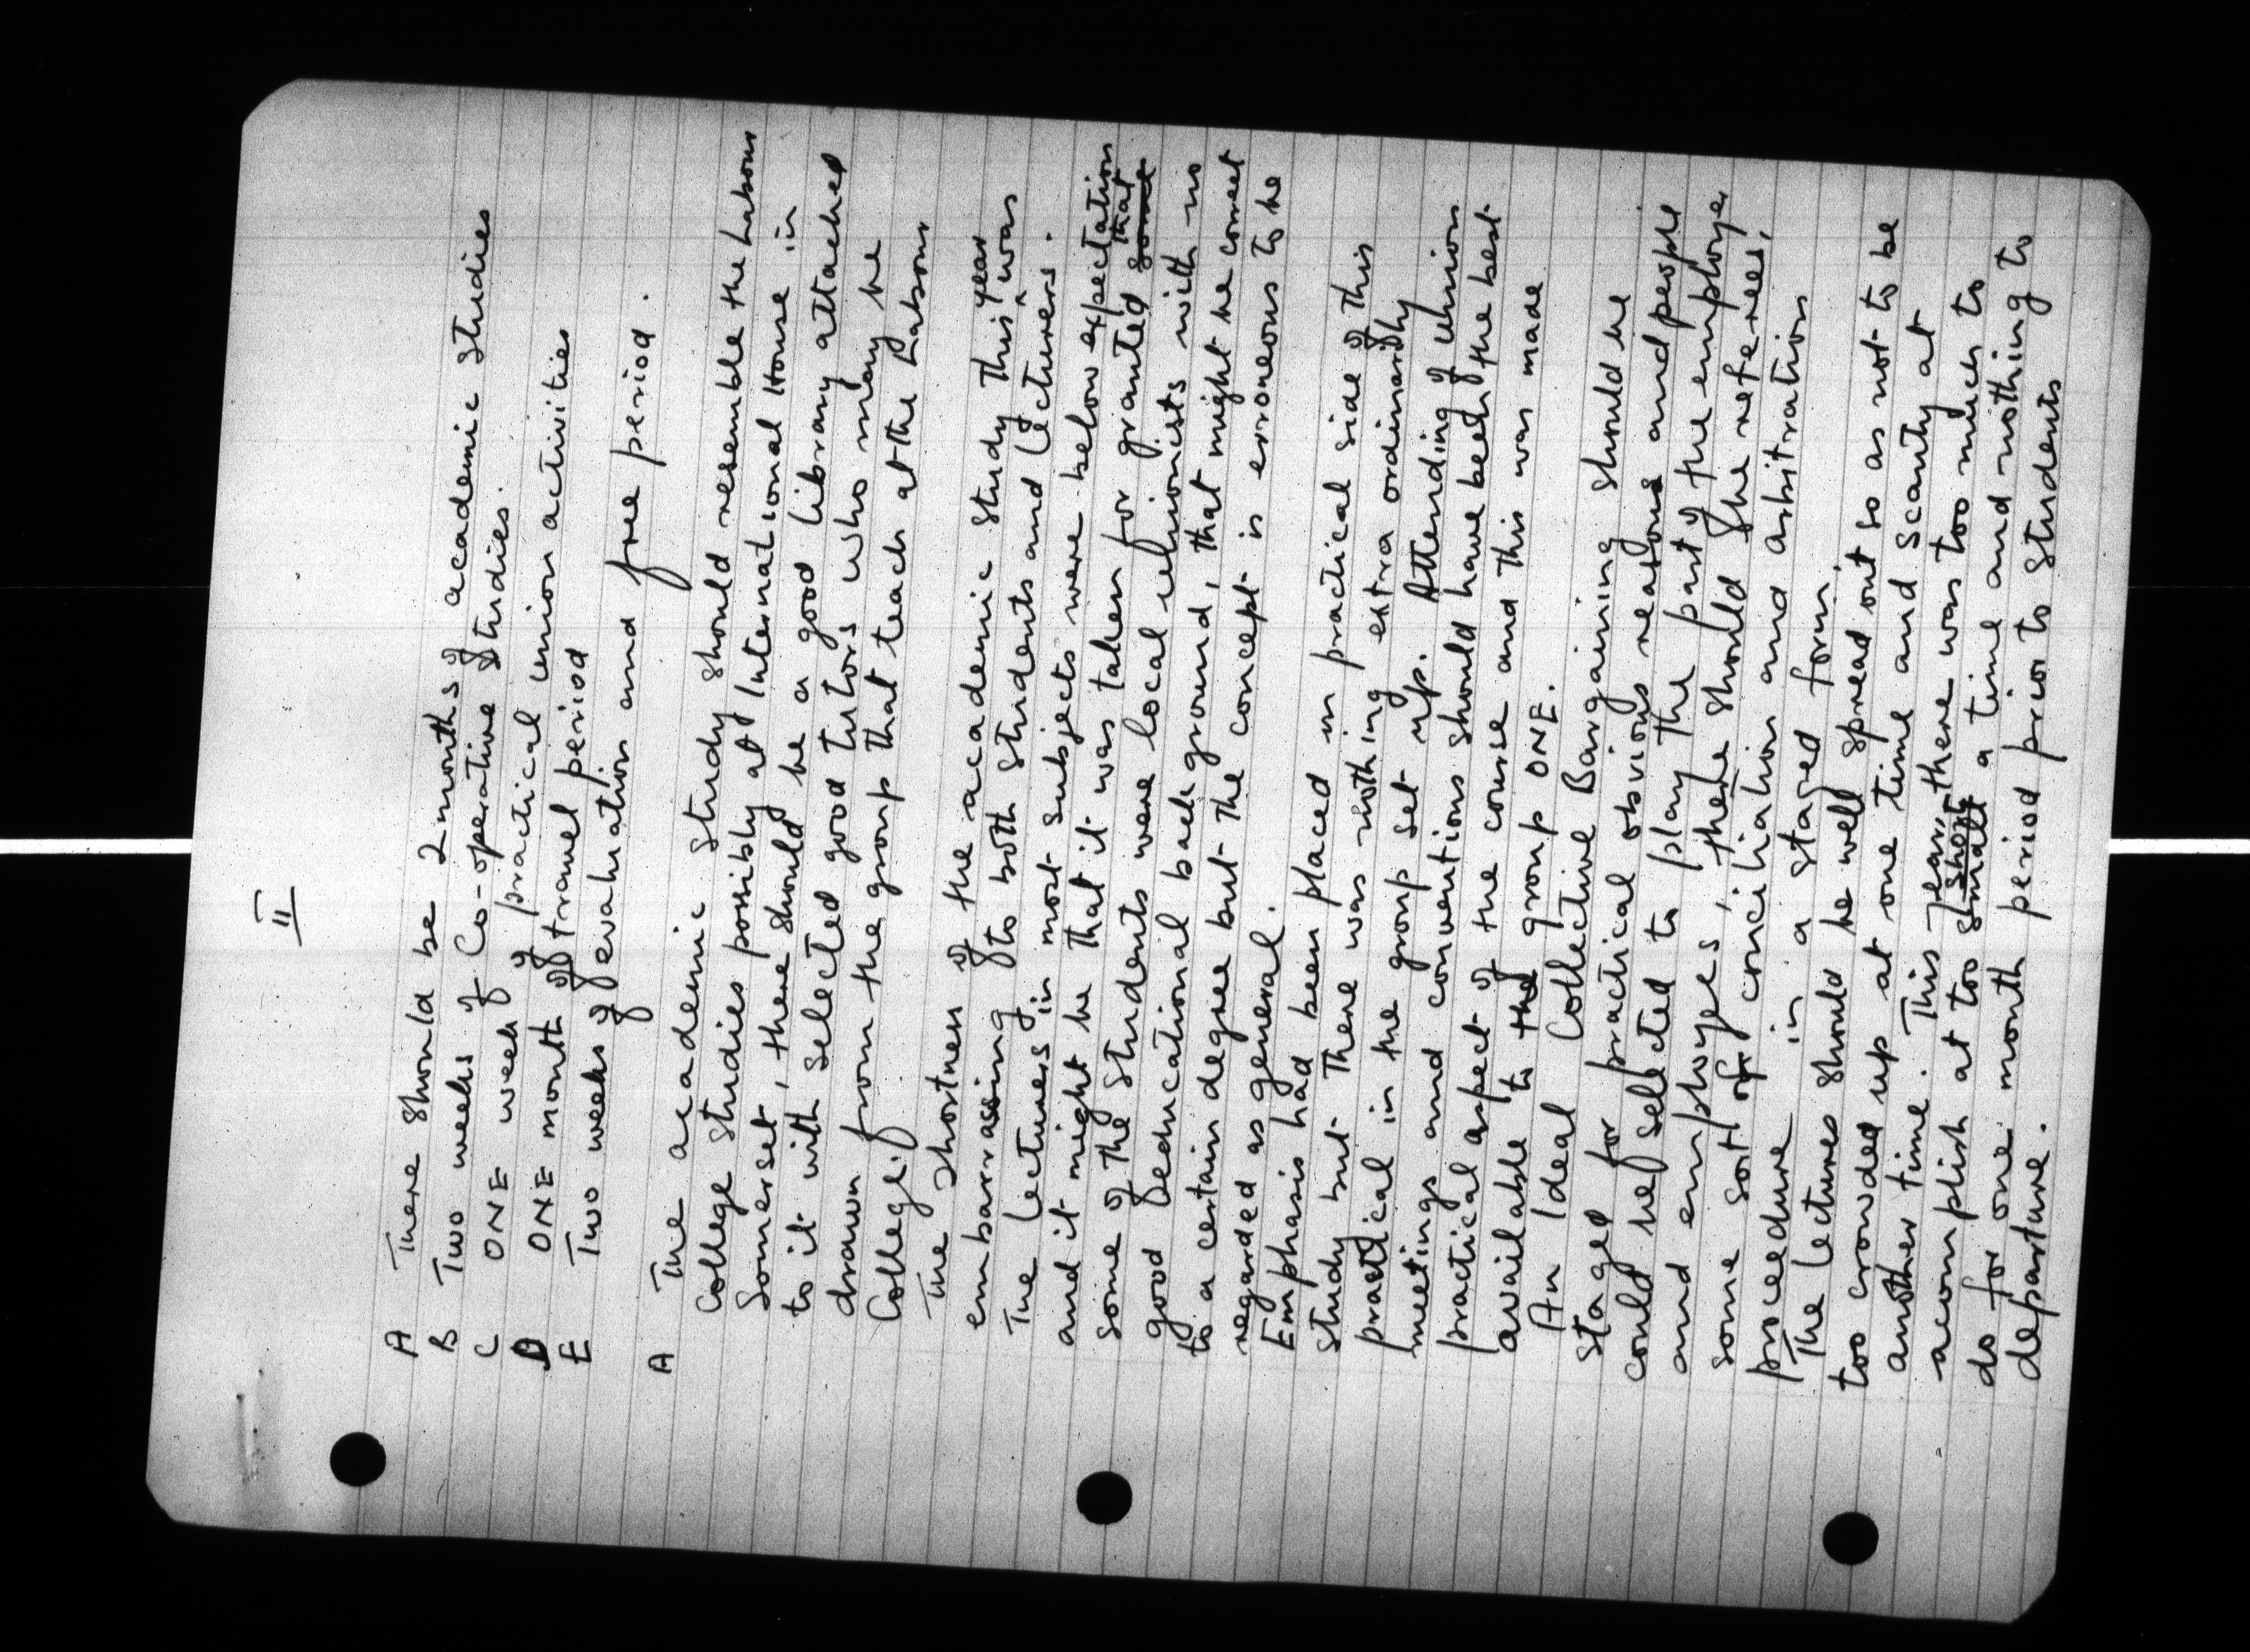 II
A There should be 2 months of accademic studies
B Two weeks of Co-operative studies.
C ONE week of practical union activities
D ONE month of travel period
E Two weeks of evaluation and free period.
A The academic study should resemble the Labour
College studies possibly at International House in
Somerset, there should be a good library attached
to it with selected good tutors who may be
drawn from the group that teach at the Labour
College.
The shortness of the academic study this year was
embarrassing to both students and lecturers.
The lectures in most subjects were below expectation
and it might be that it was taken for granted that some
some of the students were local unionists with no
good educational background, that might be correct
to a certain degree but the concept is erroneous to be
regarded as general.
Emphasis had been placed in practical side of this
study but there was nothing extra ordinarily
practical in the group set up. Attending of union
meetings and conventions should have been the best
practical aspect of the course and this was made
available to the group ONE.
An Ideal Collective Bargaining should be
staged for practical obvious reasons and people
could be selected to play the part of the employer
and employees, there should be referees,
some sort of conciliation and arbitration
proceedure in a staged form.
The lectures should be well spread out so as not to be
too crowded up at one time and scanty at
another time. This year, there was too much to
accomplish at too small short a time and nothing to
do for one month period prior to students
departure.